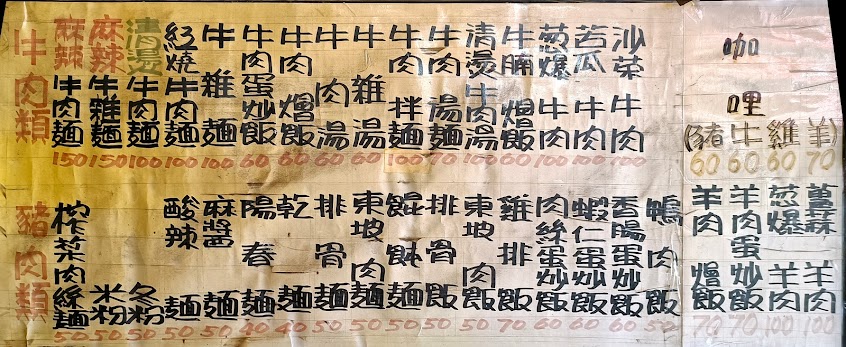 牛肉類
麻辣牛肉麵 150
麻辣牛雜麵 150
清燙牛肉麵 100
紅燒牛肉麵 100
牛雜麵 100
牛肉蛋炒飯 60
牛肉燴飯 60
牛肉湯 60
牛雜湯 60
牛肉拌麵 100
牛肉湯麵 70
清燙牛肉湯 100
牛腩飯 60
葱爆牛肉 100
苦瓜牛肉 100
沙茶牛肉 100
咖哩
(豬 牛 雞 羊)
60 60 60 70
豬肉類
榨菜肉絲麵 50
米粉 50
冬粉 50
酸辣麵 50
麻醬麵 50
陽春麵 40
乾麵 40
排骨麵 50
東坡肉麵 50
餛飩麵 50
排骨飯 50
東坡肉飯 50
雞排飯 70
肉絲蛋炒飯 60
蝦仁蛋炒飯 60
香腸蛋炒飯 60
鴨肉飯 50
羊肉燴飯 70
羊肉蛋炒飯 70
葱爆羊肉 100
薑蒜羊肉 100